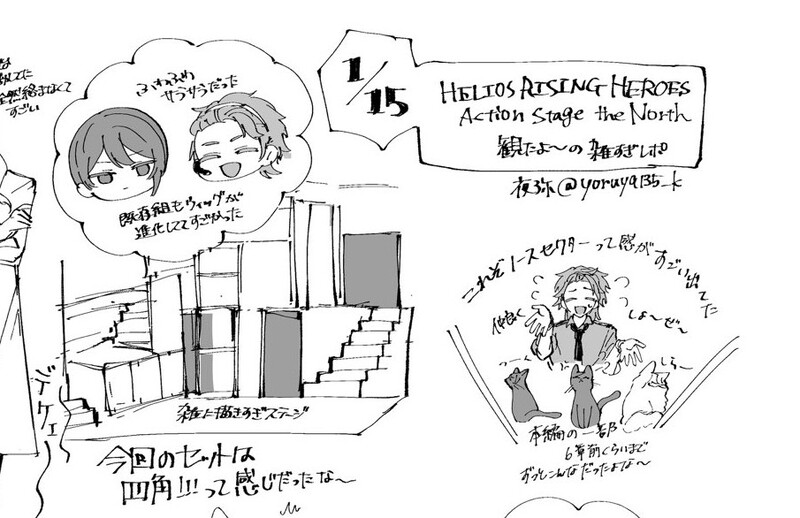 1/15
HELIOS RISING HEROES
Action Stage the North
観たよ〜の 雑すぎレポ
夜弥@yoruya135_k
すごい
ふわふわ
サラサラだった
既存組もウィッグが
進化しててすごかった
これぞノースセクターって感がすごい出てた
仲良く
しよ〜ぜ〜
つーん
しら〜
本編の一部
6章前くらいまで
ずっとこんなだったよな〜
デケェ
雑に描きすぎステージ
今回のセットは
四角!!!って感じだったな〜